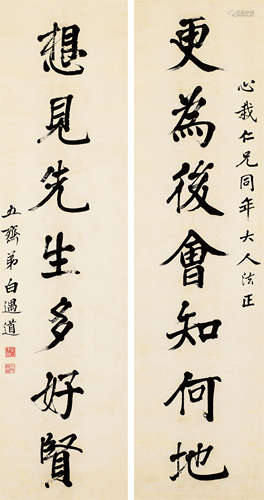 心栽仁兄同年大人法正
更為後會知何地
想見先生多好賢
五齋弟白遇道